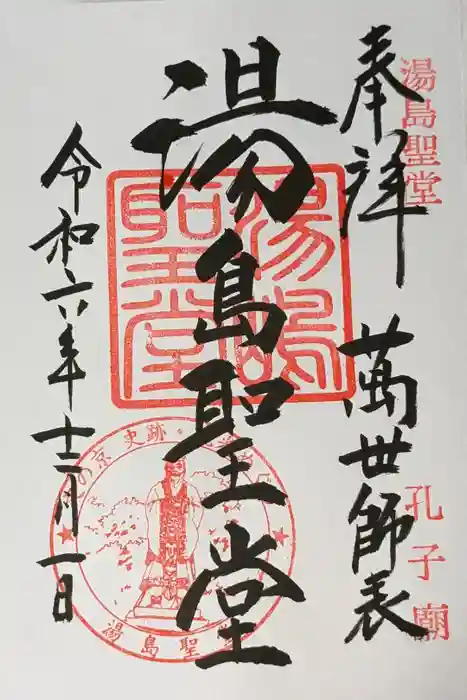 奉拝
湯島聖堂
萬世師表
孔子廟
湯島聖堂
湯島聖堂
令和六年十二月一日
の京史跡・
湯島聖